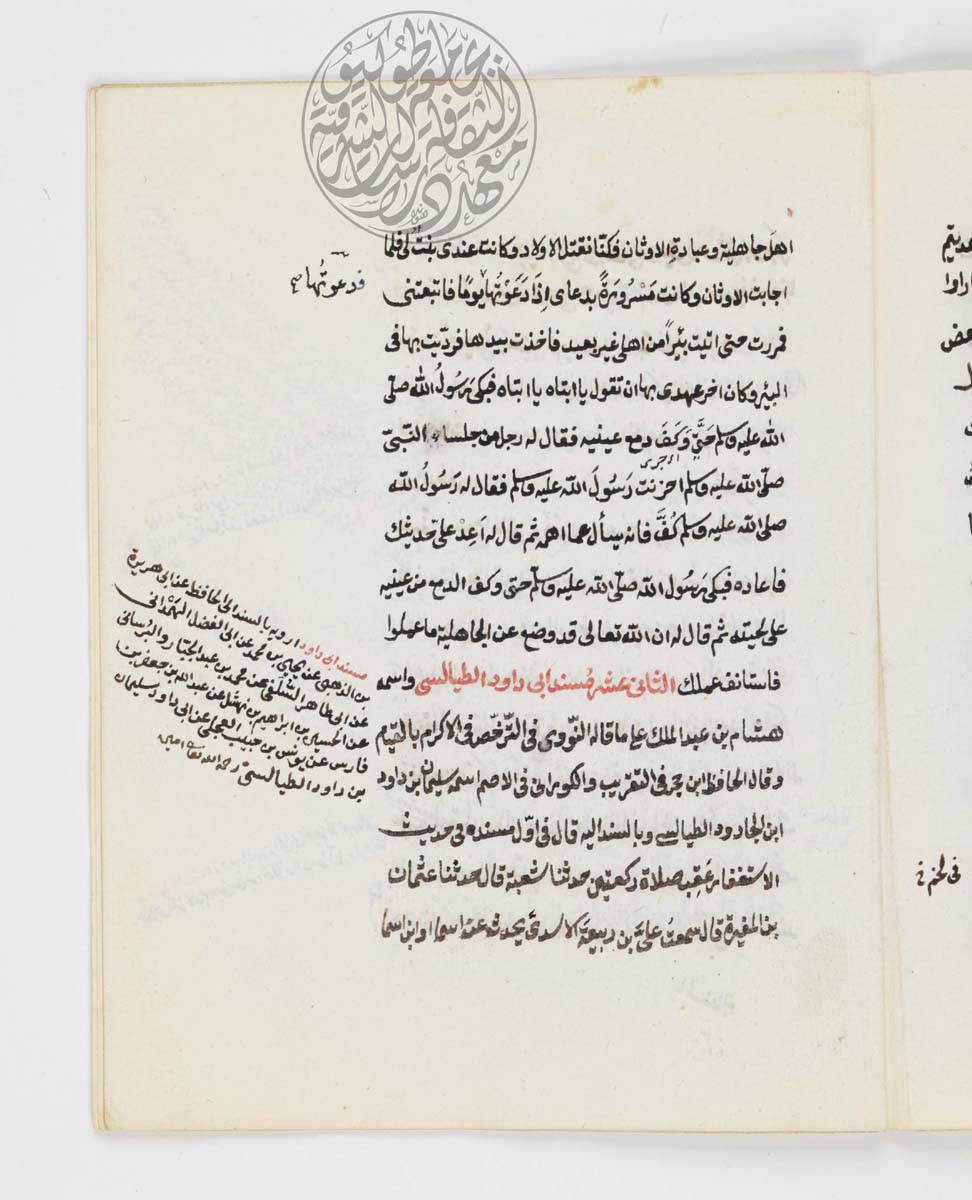 اهل جاهلية وعبادة الاوثان فكنا نقتل الاولاد وكانت عندى بنتٌ لى فلما
اجابت الاوثان وكانت مَسْرُورَةً بدعاى اِذَا دَعَوْتُها يومًا فاتبعتنى
فدعوتُها صح
فمررت حتى اتيت بئراً من اهلى غير بعيد فاخذت بيدها فرديت بها فى
البئر وكان اخر عهدى بها ان تقول يا ابتاه يا ابتاه فبكى رَسُولُ الله صلّى
الله عليه وسلم حَتَّى وَكَفَ دمع عينيه فقال له رجل من جلساء النّبىّ
صلّى الله عليه وسلم احزنت رَسُولَ الله عليه وسلم فقال له رَسُولُ الله
صلى الله عليه وسلم كُفَّ فانه يسأل عما اهمه ثم قال له اَعِدْ على حديثك
فاعاده فبكى رَسُول الله صلّى الله عليه وسلّم حتى وكف الدمع من عينيه
على لحيته ثم قال له ان الله تعالى قد وضع عن الجاهلية ما عملوا
فاستانف عملك الثانى عشر مُسند ابى داود الطيالسى واسمه
هشام بن عبد الملك على ما قاله النّووى فى التّرخّص فى الاكرام بالقيام
وقال الحافظ ابن حجر فى التقريب والكورانى فى الامم اسمه سليمان بن داود
ابن الجارود الطيالسى وبالسند اليه قال فى اوّل مسنده فى حديث
الاستغفار عَقِب صلاة ركعتين حدثنا شعبة قال حدثنا عثمان
بن المغيرة قال سمعتُ علىَّ بن ربيعة الاسدىَّ يحدث عن اسما او ابن اسما
مسند ابى داود ارويه بالسند الى الحافظ عن ابى هريرة
بن الذهبى عن يحيى بن محمد عن ابى الفضل الهَمْدانى
عن ابى طاهر السّلفى عن محمد بن عبد الجبّار والبُرسانى
عن الحسين بن ابراهيم بن نهشل عن عبد الله بن جعفر بن
فارس عن يونس بن حبيب العجلى عن ابى داود سليمان
بن داود الطيالسىّ رحمه الله تعا امين